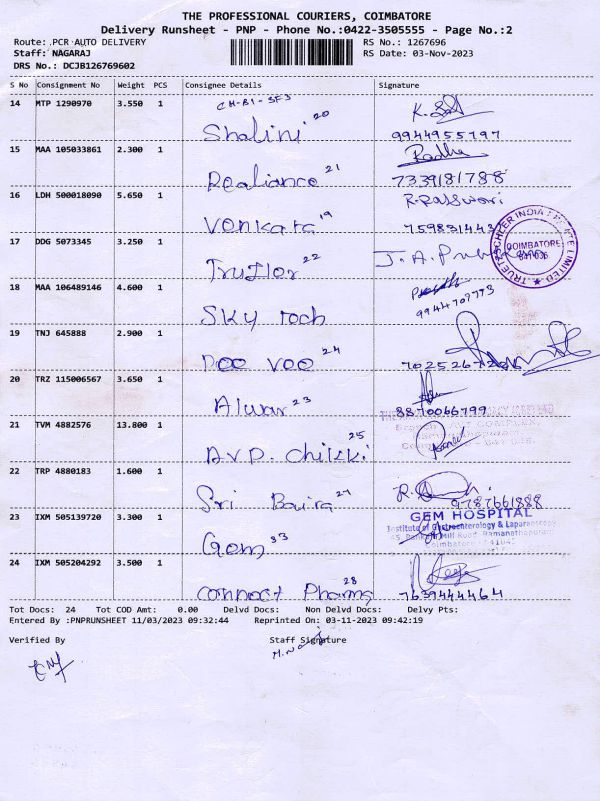 THE PROFESSIONAL COURIERS, COIMBATORE
Delivery Runsheet - PNP - Phone No.:0422-3505555 - Page No.:2
Route: .PCR-AUTO DELIVERY
RS No.: 1267696
Staff: NAGARAJ
RS Date: 03-Nov-2023
DRS No.: DCJB126769602
S No Consignment No Weight PCS Consignee Details Signature
CH-B1-SF3
14 MTP 1290970 3.550 1
Shalini 20
9944955797
15 MAA 105033861 2.300 1 Radha
Realiance 21
7339181788
16 LDH 500018090 5.650 1
Venkata 19
759831443
17 DDG 5073345 3.250 1
22
18 MAA 106489146 4.600 1
Sky tech
9944707773
19 TNJ 645888 2.900 1
Dee vee 24
20 TRZ 115006567 3.650 1
Alwar 23
8870066799
21 TVM 4882576 13.800 1
A.V.P. 25
22 TRP 4880183 1.600 1
Sri 27
9787661888
23 IXM 505139720 3.300 1
GEM HOSPITAL
Institute of Gastroenterology & Laparoscopy
Mill Road Ramanathapuram
Coimbatore
Gem 33
24 IXM 505204292 3.500 1
Connect Pharma 28
7639444464
Tot Docs: 24 Tot COD Amt: 0.00 Delvd Docs: Non Delvd Docs: Delvy Pts:
Entered By :PNPRUNSHEET 11/03/2023 09:32:44 Reprinted On: 03-11-2023 09:42:19
Verified By
Staff Signature